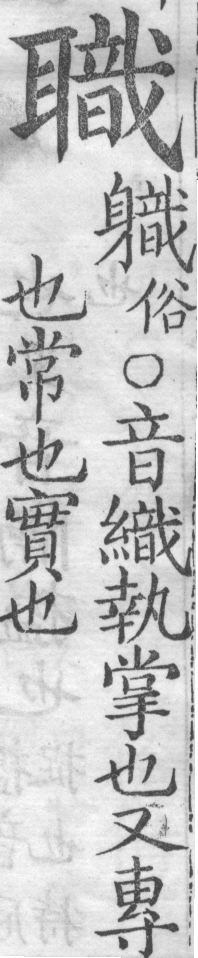 職
軄俗○音織執掌也又專
也常也實也